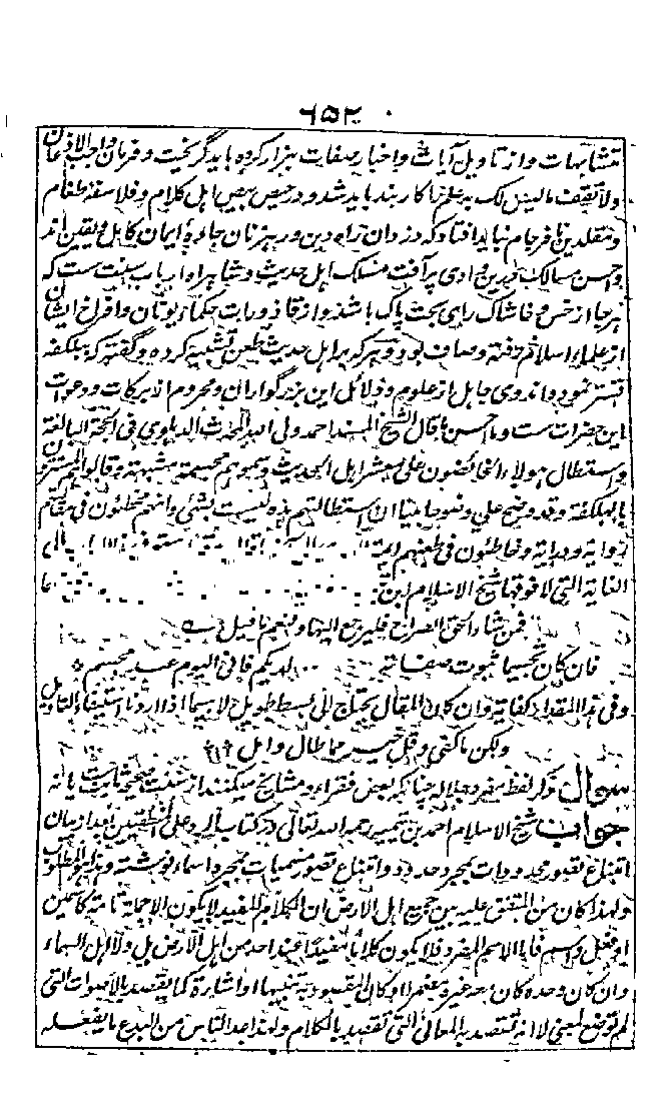 ۶۵۲
متشابهات و از تاویل آیات و اخبار صفات بیزار کرده باید گریخت و فرمان واجب الاذعان
ولا تقف ما لیس لک به علم را کار بند باید شد و در حیص بیص اهل کلام و فلاسفه طغام
و مقلدین نافرجام نباید افتاد که دزدان راه دین و رهزنان جادهٔ ایمان کامل و یقین اند
و احسن مسالک درین وادی پر آفت مسلک اهل حدیث و شاهراه ارباب سنت ست که
هر جا از خس و خاشاک رای بحت پاک باشد و از قاذورات حکماء یونان و افراخ ایشان
از علماء اسلام رفته و صاف بود و هر که بر اهل حدیث طعن تشبیه کرده و گفته که ببلکفه
تستر نموده اند وی جاهل از علوم و دلائل این بزرگواران و محروم از برکات و دعوات
این حضرات ست وما احسن ما قال الشیخ المسند احمد ولی الله المحدث الدهلوی فی الحجة البالغة
واستطال هولاء الخائضون علی معشر اهل الحدیث وسموهم مجسمة مشبهة وقالوا هم المتسترون
بالبلکفة وقد وضح علی وضوحا بینا ان استطالتهم هذه لیست بشئ وانهم مخطئون فی مقالتهم
روایة ودرایة وخاطئون فی طعنهم ائمة
الغایة التی لا فوقها شیخ الاسلام ابن
فمن شاء الحق الصراح فلیرجع الیها ونعم ما قیل
فان کان تجسیما ثبوت صفاته لدیکم فانی الیوم عبد مجسم
وفی هذا المقدار کفایة وان کان المقال یحتاج الی بسط طویل لا سیما اذا اردنا استیفاء التاویل
ولکن ما کفی وقل خیر مما طال وامل
سوال ذکر لفظ مفرد جلاله چنانکه بعض فقراء و مشائخ میکنند از سنت صحیحه ثابت ست یا نه
جواب شیخ الاسلام احمد بن تیمیه رحمه الله تعالی در کتاب الرد علی المنطقیین بعد از بیان
امتناع تصور محدودات بمجرد حدود و امتناع تصور مسمیات بمجرد اسماء نوشته وهذا هو المطلوب
ولهذا کان من المتفق علیه بین جمیع اهل الارض ان الکلام المفید لا یکون الا جملة تامة کاسمین
او فعل واسم فاما الاسم المفرد فلا یکون کلاما مفیدا عند احد من اهل الارض بل ولا اهل السماء
وان کان وحده کان معه غیره مضمرا او کان المقصود به تنبیها او اشارة کما یقصد بالاصوات التی
لم توضع لمعنی لا انه تقصد به المعانی التی تقصد بالکلام ولهذا عد الناس من البدع ما یفعله